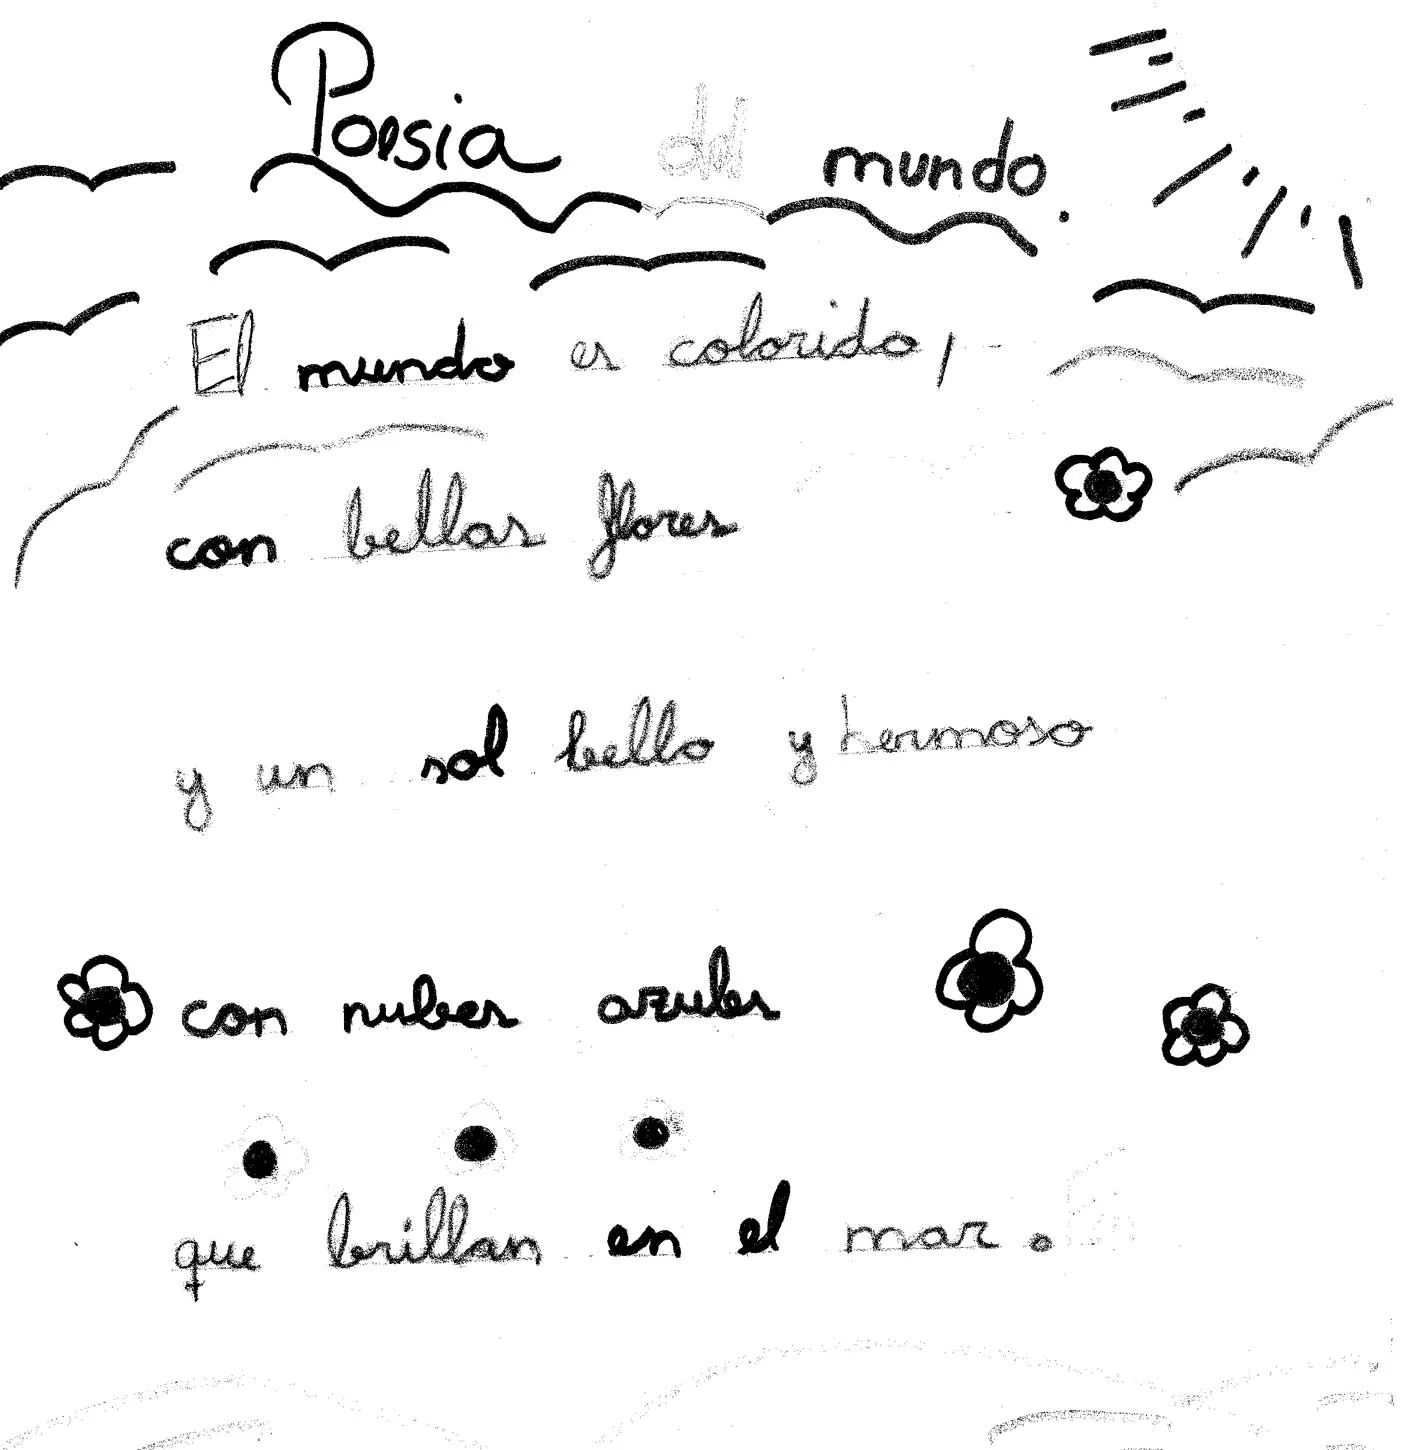 Poesia del mundo.
El mundo es colorido,
con bellas flores
y un sol bello y hermoso
con nubes azules
que brillan en el mar.